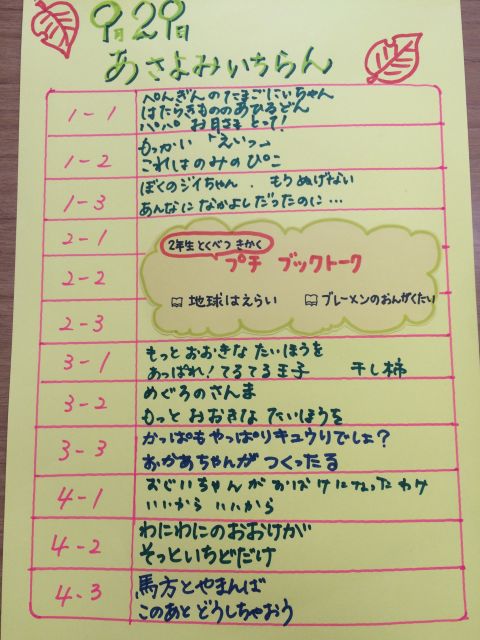 9月29日
あさよみいちらん
1-1
ぺんぎんのたまごにいちゃん
はたらきもののあひるどん
パパ お月さま とって!
1-2
もっかい 「えいっ」
これはのみのぴこ
1-3
ぼくのジイちゃん . もうぬげない
あんなになかよしだったのに…
2-1
2-2
2-3
2年生 とくべつ きかく
プチ ブックトーク
地球はえらい ブレーメンのおんがくたい
3-1
もっとおおきな たいほうを
あっぱれ!てるてる王子 干し柿
3-2
めぐろのさんま
もっと おおきな たいほうを
3-3
かっぱもやっぱりキュウりでしょ?
おかあちゃんが つくったる
4-1
おじいちゃんがおばけになったわけ
いいから いいから
4-2
わにわにのおおけが
そっといちどだけ
4-3
馬方とやまんば
このあと どうしちゃおう